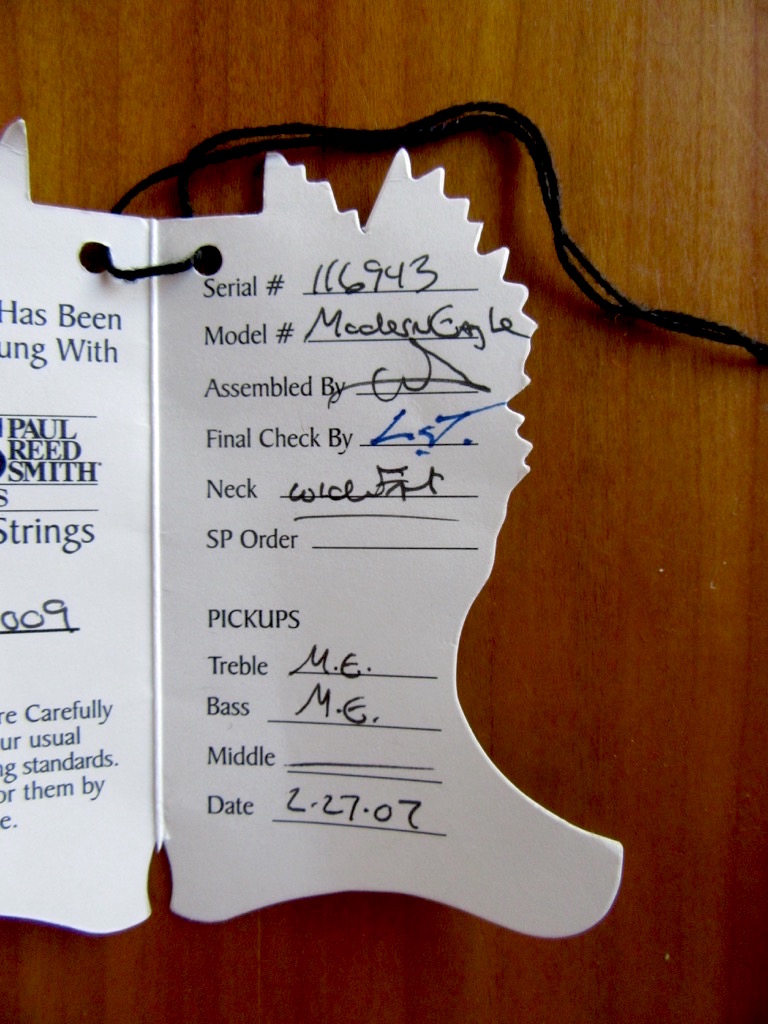 Has Been
ung With
PAUL
REED
SMITH
S
Strings
009
re Carefully
ur usual
g standards.
or them by
e.
Serial # 116943
Model # Modern Eagle
Assembled By
Final Check By
Neck wide Fat
SP Order
PICKUPS
Treble M.E.
Bass M.E.
Middle
Date 2-27-07